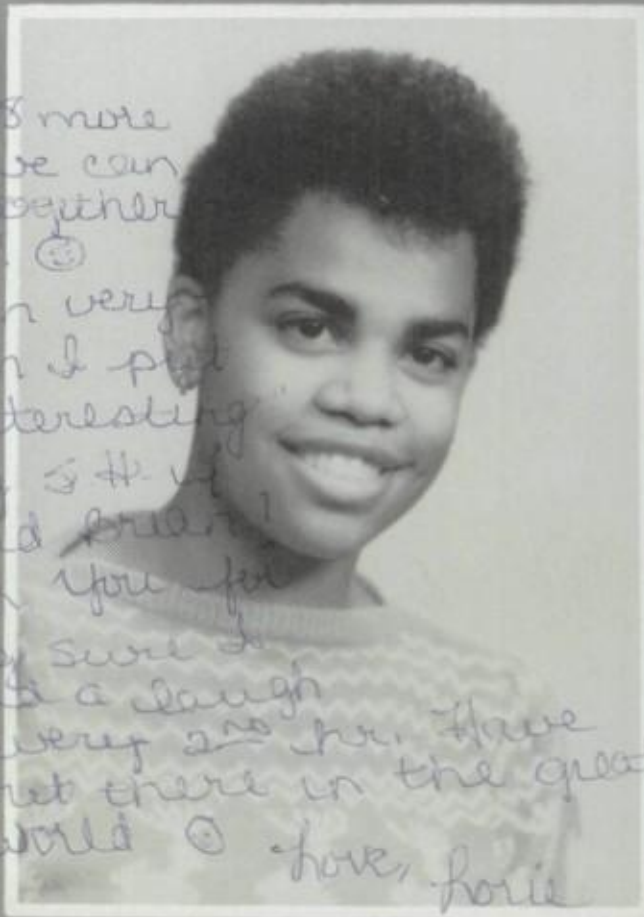 more
we can
together
☺
n very
n I put
nteresting
5 #
d
you for
sure
a laugh
every 2nd hr. Have
out there in the grea
world ☺
Love, Lorie